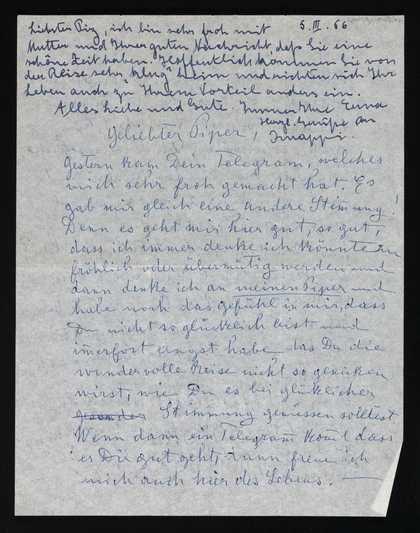 Liebster Pip, ich bin sehr froh mit 5. III. 66
Mutter und Ihrer guten Nachricht, daß Sie eine
schöne Zeit haben. Hoffentlich kommen Sie von
der Reise sehr "klug" heim und richten sich Ihr
Leben auch zu Ihrem Vorteil anders ein.
Alles Liebe und Gute. Immer Ihre
Herzl. Grüße an
Geliebter Piper,
Gestern kam Dein Telegram, welches
mich sehr froh gemacht hat. Es
gab mir gleich eine andere Stimmung!
Denn es geht mir hier gut, so gut,
dass ich immer denke ich könnte
fröhlich oder übermütig werden und
dann denke ich an meinen Piper und
habe noch das gefühl in mir, dass
Du nicht so glücklich bist und
imerfort angst habe das Du die
wundervolle Reise nicht so geniken
wirst, wie Du es bei glücklicher
Stimmung geniessen solltest
Wenn dann ein Telegram komt dass
es Dir gut geht, nun freue ich
mich auch hier des Lebens. —